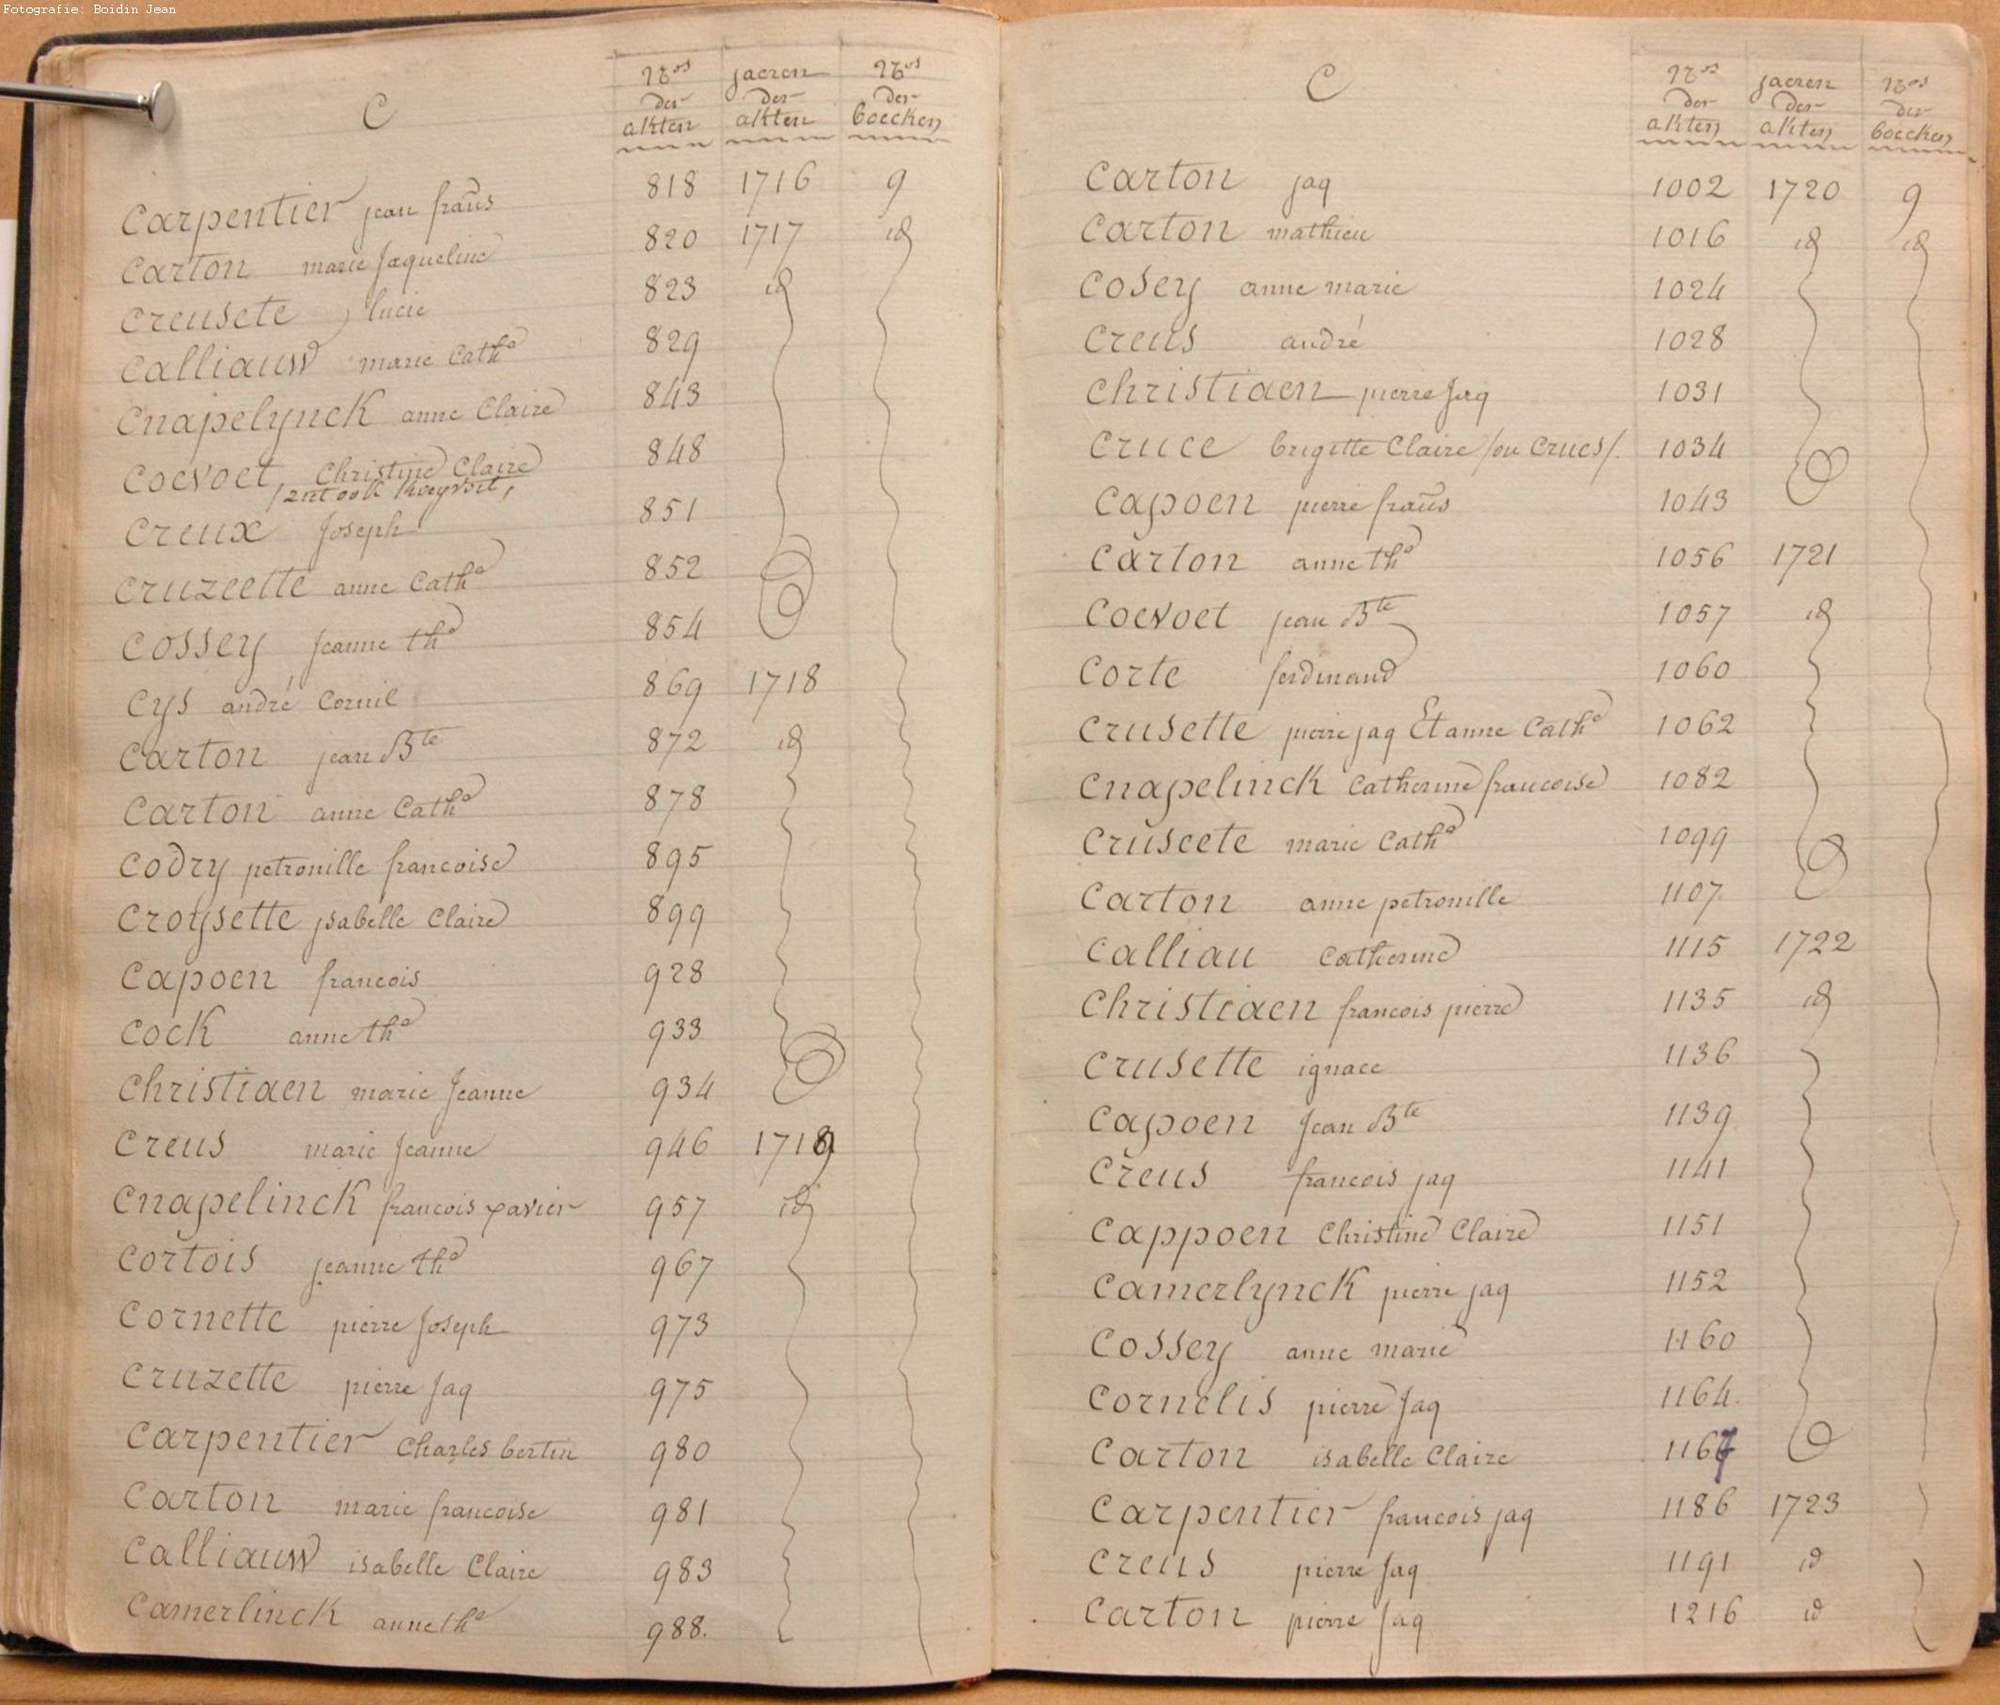 Fotografie: Boidin Jean
C
Nos der akten jaeren der akten Nos der boecken
Carpentier jean frans 818 1716 9
Carton marie Jaqueline 820 1717 id
Creusete lucie 823 id
Calliauw marie Cathe 829
Cnapelynck anne Claire 843
Coevoet, Christine Claire 848
/ent ook Koeyvoet,
Creux Joseph 851
Cruzeette anne Cathe 852
Cossey Jeanne the 854
Cys andré Cornil 869 1718
Carton jean Bte 872 id
Carton anne Cathe 878
Codry petronille francoise 895
Croysette ysabelle Claire 899
Capoen francois 928
Cock anne the 933
Christiaen marie Jeanne 934
Creus marie Jeanne 946 1719
Cnapelinck francois xavier 957 id
Cortois jeanne the 967
Cornette pierre Joseph 973
Cruzette pierre Jaq 975
Carpentier Charles bertin 980
Carton marie francoise 981
Calliauw isabelle Claire 983
Camerlinck anne the 988.
C
Nos der akten jaeren der akten Nos der boecken
Carton jaq 1002 1720 9
Carton mathieu 1016 id id
Cosey anne marie 1024
Creus andré 1028
Christiaen pierre Jaq 1031
Cruce brigitte Claire /ou Crues/. 1034
Capoen pierre frans 1043
Carton anne the 1056 1721
Coevoet jean Bte 1057 id
Corte ferdinand 1060
Crusette pierre jaq Et anne Cathe 1062
Cnapelinck Catherine francoise 1082
Cruscete marie Cathe 1099
Carton anne petronille 1107.
Calliau Catherine 1115 1722
Christiaen francois pierre 1135 id
Crusette ignace 1136
Capoen Jean Bte 1139
Creus francois jaq 1141
Cappoen Christine Claire 1151
Camerlynck pierre jaq 1152
Cossey anne marie 1160
Cornelis pierre Jaq 1164.
Carton isabelle Claire 1167
Carpentier francois jaq 1186 1723
Creus pierre Jaq 1191 id
Carton pierre Jaq 1216 id